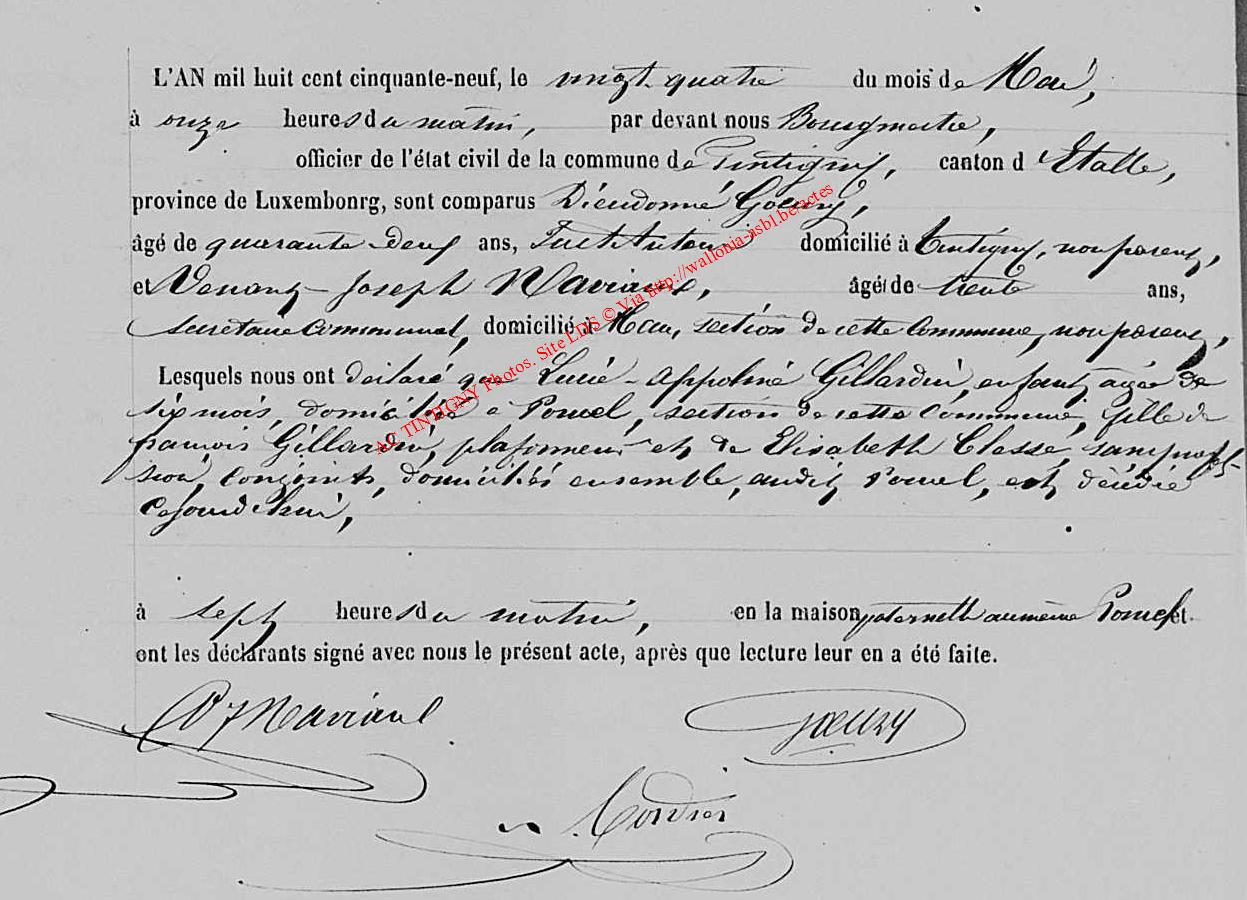 L'AN mil huit cent cinquante-neuf, le vingt quatre du mois de Mai,
à onze heures du matin, par devant nous Bourgmestre,
officier de l'état civil de la commune de Tintigny, canton d'Etalle,
province de Luxembourg, sont comparus Dieudonné Goeury,
âgé de quarante-deux ans, Instituteur domicilié à Tintigny, non parent,
et Venant-Joseph Maviaux, âgé de trente ans,
Secrétaire Communal, domicilié à Han, section de cette Commune, non parent,
Lesquels nous ont déclaré que Lucie-Appoline Gillardin, enfant agée de
six mois, domiciliée à Poncel, section de cette commune, fille de
françois Gillardin, plafonneur et de Elisabeth Classe, sans profes-
sion, conjoints, domiciliés ensemble, audit Poncel, est décédée
Cejourd'hui,
à sept heures du matin, en la maison paternelle au même Poncel et
ont les déclarants signé avec nous le présent acte, après que lecture leur en a été faite.
Goeury
Cordier
AC TINTIGNY Photos. Site LDS © Via http://wallonia-asbl.be/actes